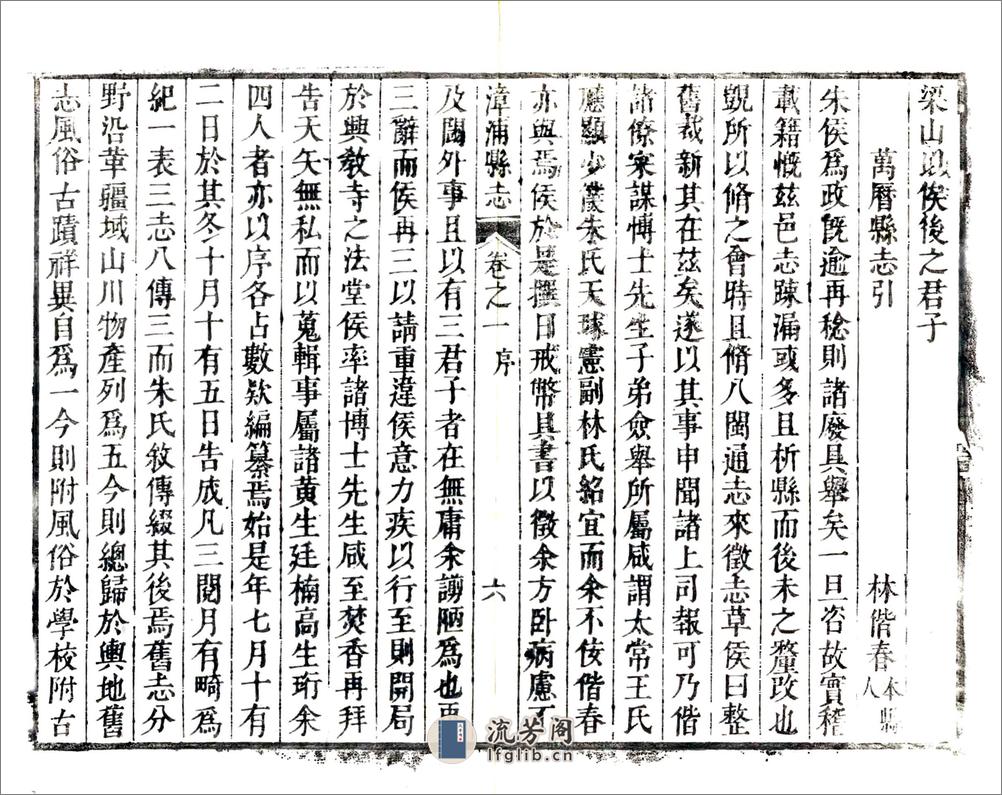 梁山以俟後之君子
萬曆縣志引
林偕春本縣人
朱侯爲政旣逾再稔則諸廢具舉矣一旦咨故實稽
載籍慨兹邑志踈漏或多且析縣而後未之釐改也
覬所以脩之會時且脩八閩通志來徵志草侯曰整
舊裁新其在兹矣遂以其事申聞諸上司報可乃偕
諸僚寀謀博士先生子弟僉舉所屬咸謂太常王氏
少 朱氏天球憲副林氏 宜而余不佞偕春
亦與焉侯於是撰日戒幣具書以徵余方卧病慮不
漳浦縣志
卷之一
序
六
及閫外事且以有三君子者在無庸余謭陋爲也再
三辭而侯再三以請重違侯意力疾以行至則開局
於興教寺之法堂侯率諸博士先生咸至焚香再拜
告天矢無私而以蒐輯事屬諸黄生廷楠高生珩余
四人者亦以序各占數欵編纂焉始是年七月十有
二日於其冬十月十有五日告成凡三閱月有畸爲
紀一表三志八傳三而朱氏敘傳綴其後焉舊志分
野沿革疆域山川物產列爲五今則總歸於輿地舊
志風俗古蹟祥異自爲一今則附風俗於學校附古
流芳阁
lfglib.cn